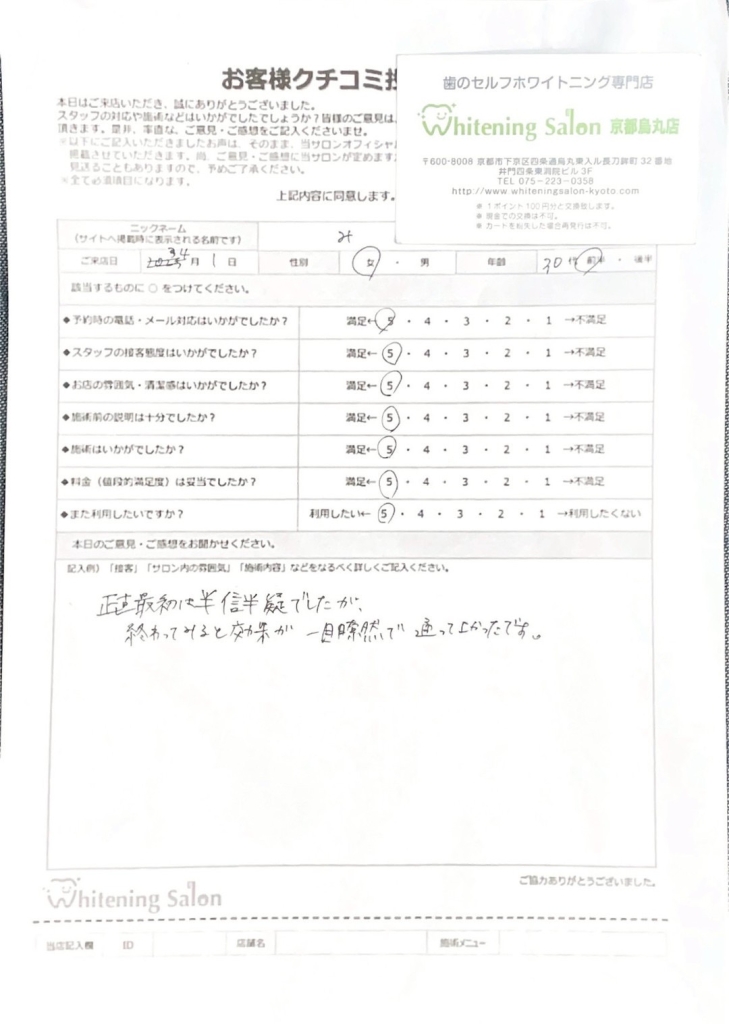 お客様クチコミ投
本日はご来店いただき、誠にありがとうございました。
スタッフの対応や施術などはいかがでしたでしょうか？皆様のご意見は、
頂きます。是非、率直な、ご意見・ご感想をご記入くださいませ。
※以下にご記入いただきましたお声は、そのまま、当サロンオフィシャル
掲載させていただきます。尚、ご意見・ご感想に当サロンが定めます
見送ることもありますので、予めご了承ください。
※全て必須項目になります。
上記内容に同意します。
歯のセルフホワイトニング専門店
Whitening Salon 京都烏丸店
〒600-8008 京都市下京区四条通烏丸東入ル長刀鉾町 32 番地
井門四条東洞院ビル 3F
TEL 075-223-0358
http://www.whiteningsalon-kyoto.com
※ 1 ポイント 100 円分と交換致します。
※ 現金での交換は不可。
※ カードを紛失した場合再発行は不可。
ニックネーム
（サイトへ掲載時に表示される名前です）
み
ご来店日 月 1 日 性別 女 ・ 男 年齢 30 代 前半 ・ 後半
該当するものに ○ をつけてください。
◆予約時の電話・メール対応はいかがでしたか？ 満足← 5 ・ 4 ・ 3 ・ 2 ・ 1 →不満足
◆スタッフの接客態度はいかがでしたか？ 満足← 5 ・ 4 ・ 3 ・ 2 ・ 1 →不満足
◆お店の雰囲気・清潔感はいかがでしたか？ 満足← 5 ・ 4 ・ 3 ・ 2 ・ 1 →不満足
◆施術前の説明は十分でしたか？ 満足← 5 ・ 4 ・ 3 ・ 2 ・ 1 →不満足
◆施術はいかがでしたか？ 満足← 5 ・ 4 ・ 3 ・ 2 ・ 1 →不満足
◆料金（値段的満足度）は妥当でしたか？ 満足← 5 ・ 4 ・ 3 ・ 2 ・ 1 →不満足
◆また利用したいですか？ 利用したい← 5 ・ 4 ・ 3 ・ 2 ・ 1 →利用したくない
本日のご意見・ご感想をお聞かせください。
記入例）「接客」「サロン内の雰囲気」「施術内容」などをなるべく詳しくご記入ください。
正直最初は半信半疑でしたが、
終わってみると効果が 一目瞭然で 通ってよかったです。
ご協力ありがとうございました。
Whitening Salon
当店記入欄 ID 店舗名 施術メニュー